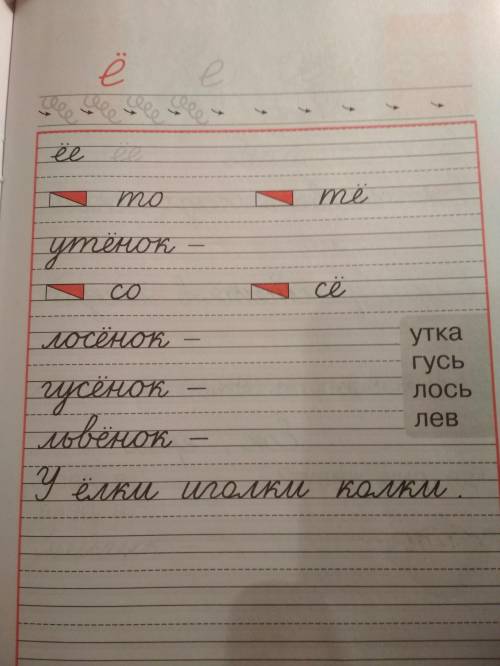 ё е
ёе ёе
то тё
утёнок –
со сё
лосёнок –
гусёнок –
львёнок –
утка
гусь
лось
лев
У ёлки иголки колки.